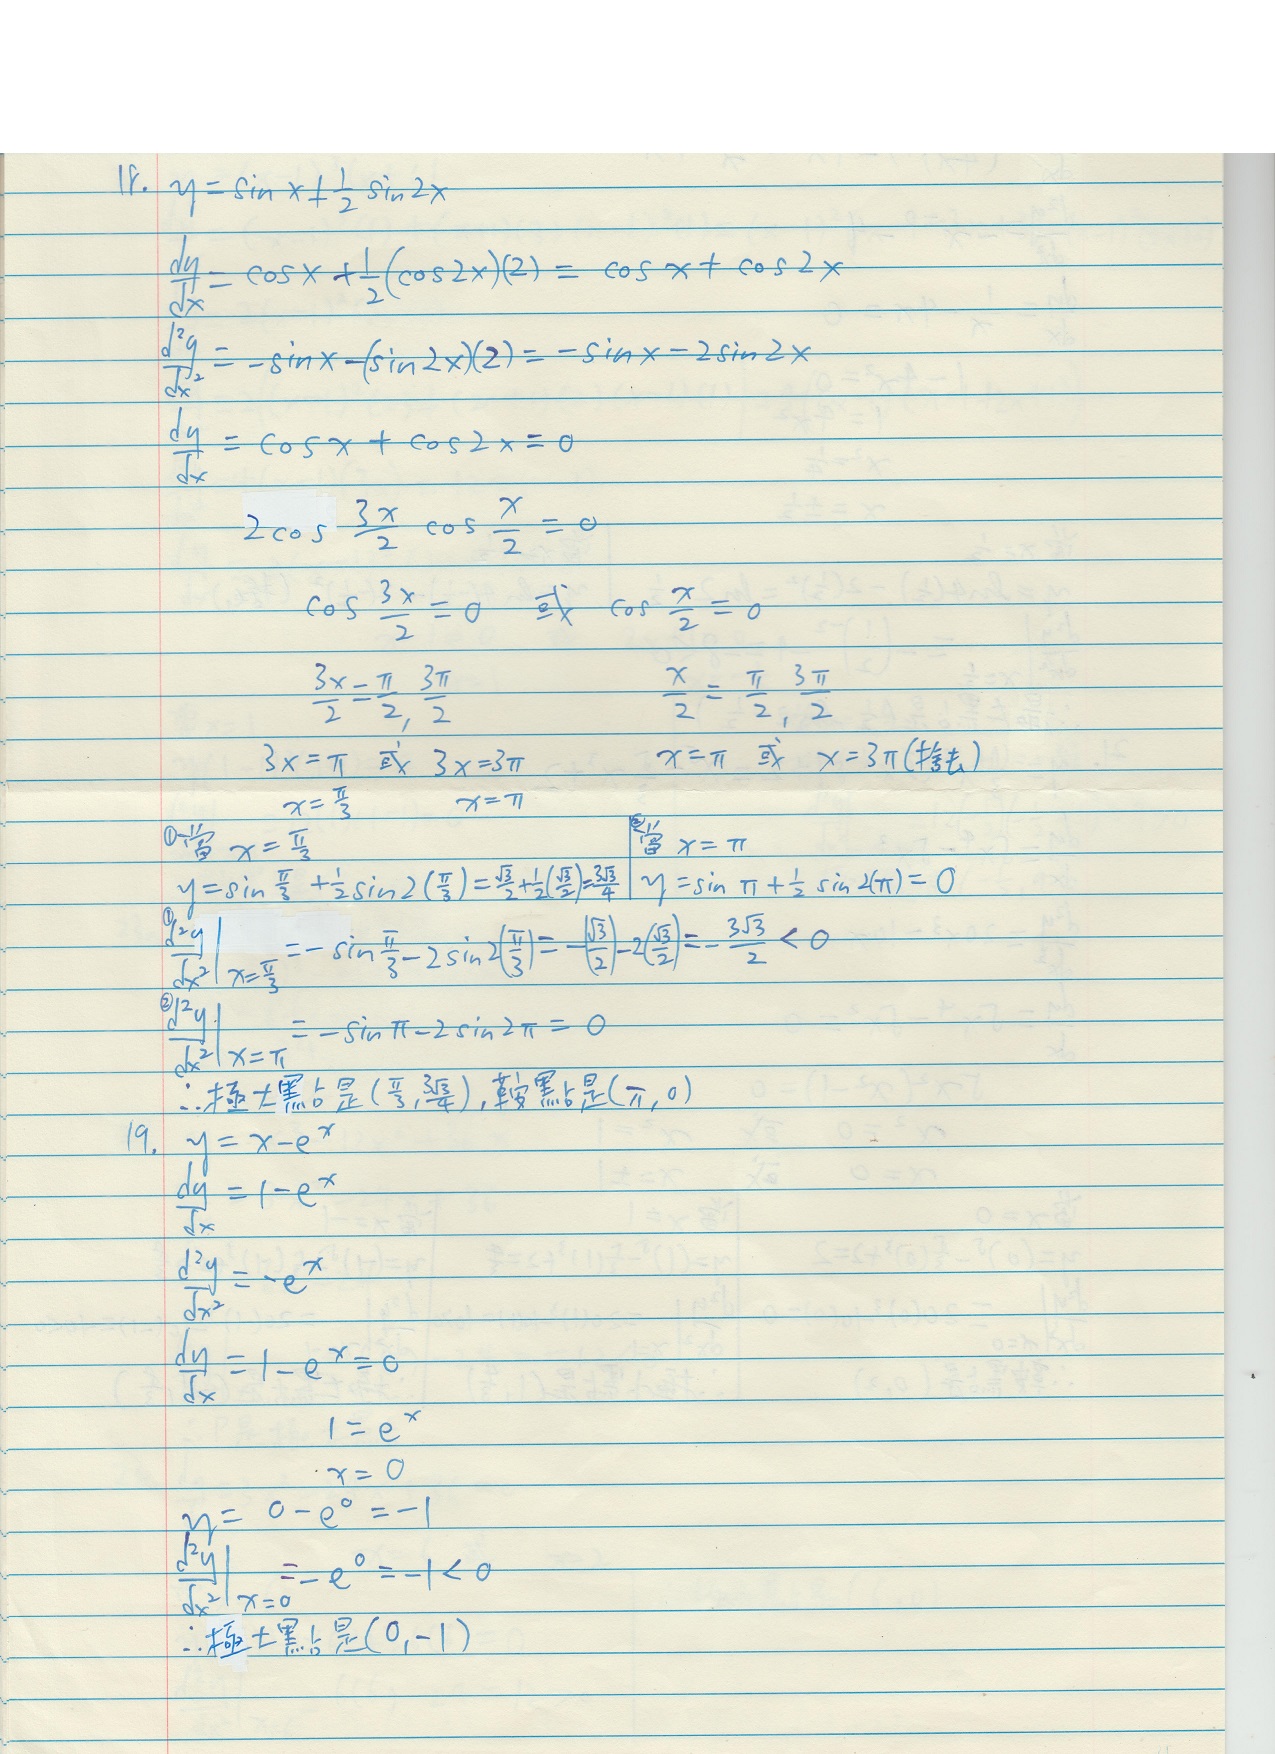 18. y = sin x + 1/2 sin 2x
dy/dx = cos x + 1/2 (cos 2x)(2) = cos x + cos 2x
d²y/dx² = -sin x - (sin 2x)(2) = -sin x - 2 sin 2x
dy/dx = cos x + cos 2x = 0
2 cos 3x/2 cos x/2 = 0
cos 3x/2 = 0 或 cos x/2 = 0
3x/2 = π/2, 3π/2 x/2 = π/2, 3π/2
3x = π 或 3x = 3π x = π 或 x = 3π (捨去)
x = π/3 x = π
① 當 x = π/3 ② 當 x = π
y = sin π/3 + 1/2 sin 2(π/3) = √3/2 + 1/2(√3/2) = 3√3/4 y = sin π + 1/2 sin 2(π) = 0
① d²y/dx² | x=π/3 = - sin π/3 - 2 sin 2(π/3) = -(√3/2) - 2(√3/2) = - 3√3/2 < 0
② d²y/dx² | x=π = - sin π - 2 sin 2π = 0
∴ 極大點是 (π/3, 3√3/4), 鞍點是 (π, 0)
19. y = x - eˣ
dy/dx = 1 - eˣ
d²y/dx² = -eˣ
dy/dx = 1 - eˣ = 0
1 = eˣ
x = 0
y = 0 - e⁰ = -1
d²y/dx² | x=0 = -e⁰ = -1 < 0
∴ 極大點是 (0, -1)